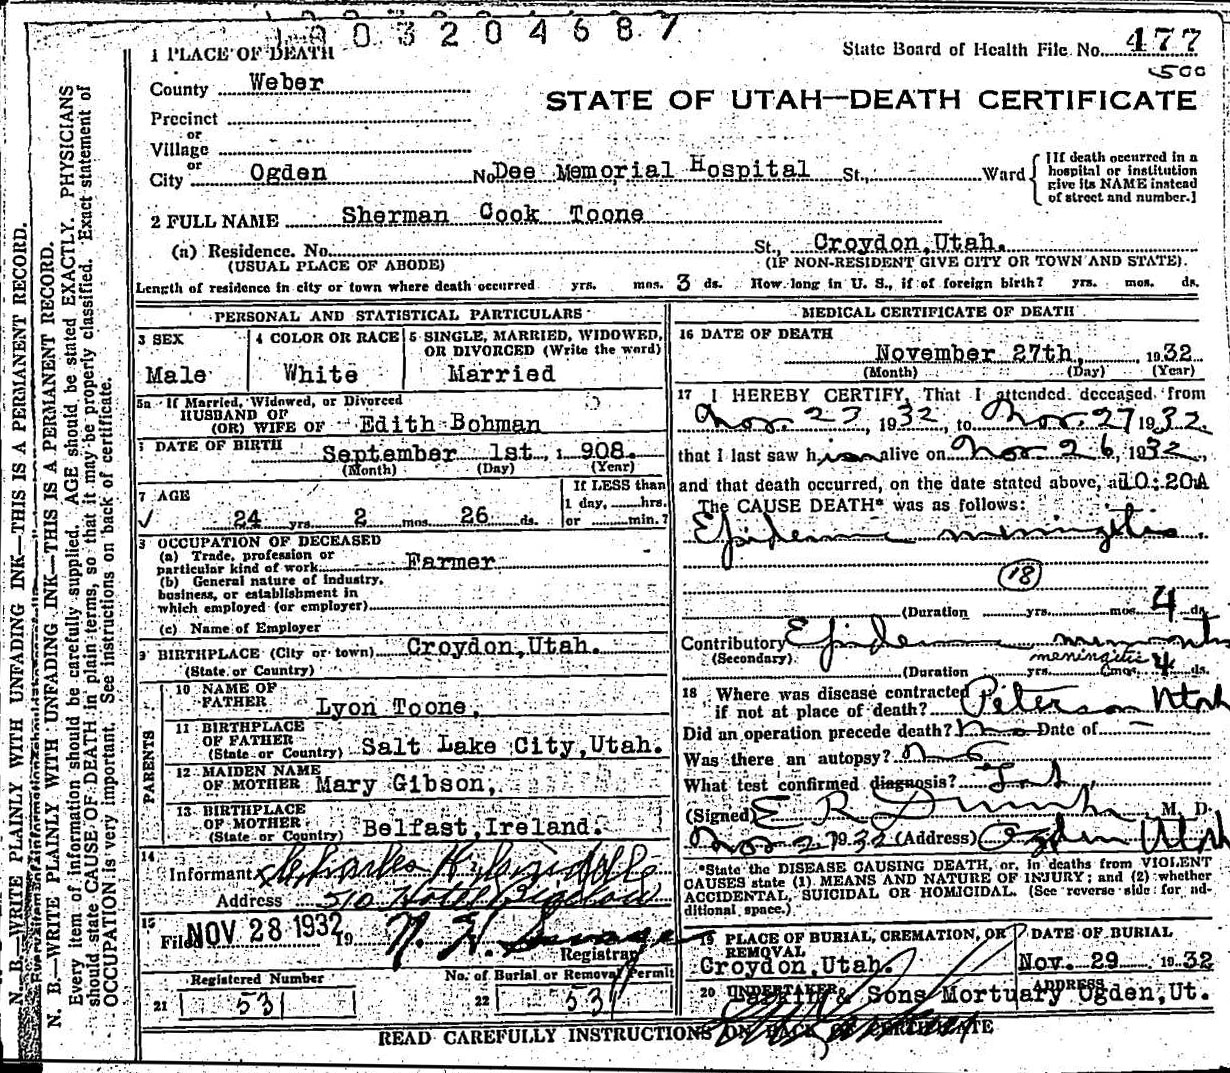 003204687
State Board of Health File No. 477
500
1 PLACE OF DEATH
County Weber
STATE OF UTAH—DEATH CERTIFICATE
Precinct
or
Village
or
City Ogden No Dee Memorial Hospital St., Ward
[If death occurred in a
hospital or institution
give its NAME instead
of street and number.]
2 FULL NAME Sherman Cook Toone
(a) Residence. No. St., Croydon, Utah.
(USUAL PLACE OF ABODE) (IF NON-RESIDENT GIVE CITY OR TOWN AND STATE).
Length of residence in city or town where death occurred yrs. mos. 3 ds. How long in U. S., if of foreign birth? yrs. mos. ds.
PERSONAL AND STATISTICAL PARTICULARS
3 SEX
Male
4 COLOR OR RACE
White
5 SINGLE, MARRIED, WIDOWED,
OR DIVORCED (Write the word)
Married
5a If Married, Widowed, or Divorced
HUSBAND OF
(OR) WIFE OF Edith Bohman
DATE OF BIRTH
September 1st, 1908.
(Month) (Day) (Year)
7 AGE
24 yrs. 2 mos. 26 ds.
If LESS than
1 day, hrs.
or min.?
OCCUPATION OF DECEASED
(a) Trade, profession or
particular kind of work Farmer
(b) General nature of industry,
business, or establishment in
which employed (or employer)
(c) Name of Employer
9 BIRTHPLACE (City or town) Croydon, Utah.
(State or Country)
PARENTS
10 NAME OF
FATHER Lyon Toone,
11 BIRTHPLACE
OF FATHER
(State or Country) Salt Lake City, Utah.
12 MAIDEN NAME
OF MOTHER Mary Gibson,
13 BIRTHPLACE
OF MOTHER
(State or Country) Belfast, Ireland.
14
Informant Charles K.
Address 510 Hotel Bigelow
15
Filed NOV 28 1932 19
Registrar
Registered Number
21 53
No. of Burial or Removal Permit
22 53
MEDICAL CERTIFICATE OF DEATH
16 DATE OF DEATH
November 27th, 1932
(Month) (Day) (Year)
17 I HEREBY CERTIFY, That I attended deceased from
Nov. 23, 1932, to Nov. 27 1932.
that I last saw him alive on Nov 26, 1932,
and that death occurred, on the date stated above, at 10:20A
The CAUSE DEATH* was as follows:
Epidemic meningitis
18
(Duration yrs. mos. 4 ds.
Contributory Epidemic
(Secondary) meningitis
(Duration yrs. mos. 4 ds.
18 Where was disease contracted
if not at place of death? Peterson Utah
Did an operation precede death? no Date of —
Was there an autopsy? no
What test confirmed diagnosis?
(Signed) E R , M. D.
Nov 27 1932 (Address) Ogden Utah
*State the DISEASE CAUSING DEATH, or, in deaths from VIOLENT
CAUSES state (1) MEANS AND NATURE OF INJURY; and (2) whether
ACCIDENTAL, SUICIDAL OR HOMICIDAL. (See reverse side for ad-
ditional space.)
19 PLACE OF BURIAL, CREMATION, OR
REMOVAL
Croydon, Utah.
DATE OF BURIAL
Nov. 29 1932
20 UNDERTAKER ADDRESS
Larkin & Sons Mortuary Ogden, Ut.
READ CAREFULLY INSTRUCTIONS ON BACK OF CERTIFICATE
N. B.—WRITE PLAINLY WITH UNFADING INK—THIS IS A PERMANENT RECORD.
N. B.—WRITE PLAINLY WITH UNFADING INK—THIS IS A PERMANENT RECORD.
Every item of information should be carefully supplied. AGE should be stated EXACTLY. PHYSICIANS
should state CAUSE OF DEATH in plain terms, so that it may be properly classified. Exact statement of
OCCUPATION is very important. See instructions on back of certificate.